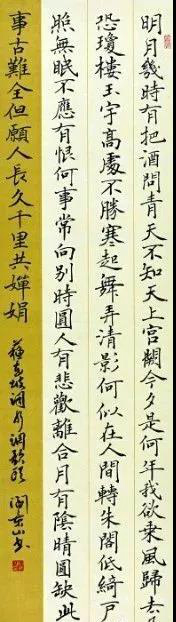 明月幾時有把酒問青天不知天上宮闕今夕是何年我欲乘風歸去又
恐瓊樓玉宇高處不勝寒起舞弄清影何似在人間轉朱閣低綺戶
照無眠不應有恨何事常向別時圓人有悲歡離合月有陰晴圓缺此
事古難全但願人長久千里共嬋娟
蘇東坡词水调歌頭 东山书